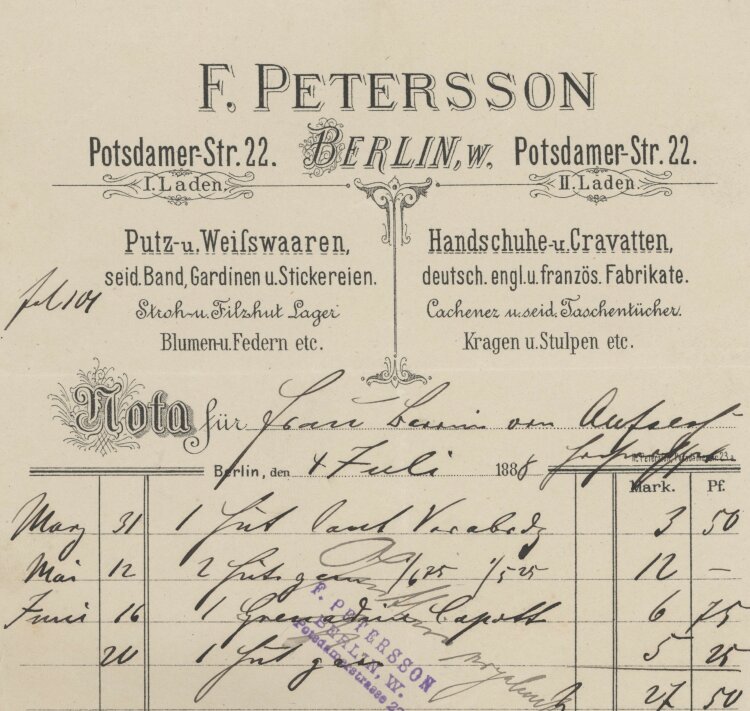 F. PETERSSON
Potsdamer-Str. 22. BERLIN, W. Potsdamer-Str. 22.
I. Laden. II. Laden
Putz- u. Weiſswaaren,
seid. Band, Gardinen u. Stickereien.
Stroh- u. Filzhut Lager
Blumen- u. Federn etc.
Handschuhe- u. Cravatten,
deutsch. engl. u. französ. Fabrikate.
Cachenez u. seid. Taschentücher.
Kragen u. Stulpen etc.
fol 101
Nota für Frau von
Berlin, den 4 Juli 1888
Mark. Pf.
März 31 1 Hut 3 50
Mai 12 2 Hüte 1/6 25 1/5 25 12 –
Juni 16 1 Capott 6 75
20 1 Hut 5 25
27 50
F. PETERSSON
BERLIN, W.
Potsdamerstrasse 22